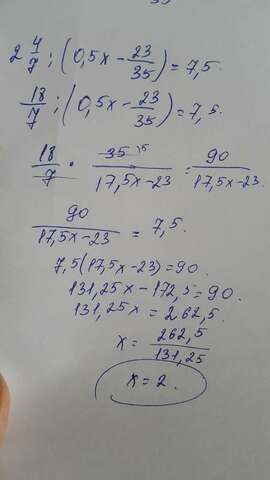 2 4/7 : (0,5x - 23/35) = 7,5.
18/7 : (0,5x - 23/35) = 7,5.
18/7 · 35 5/17,5x-23 = 90/17,5x-23.
90/17,5x-23 = 7,5.
7,5(17,5x-23)=90.
131,25x-172,5=90.
131,25x = 262,5.
x = 262,5/131,25
x = 2.